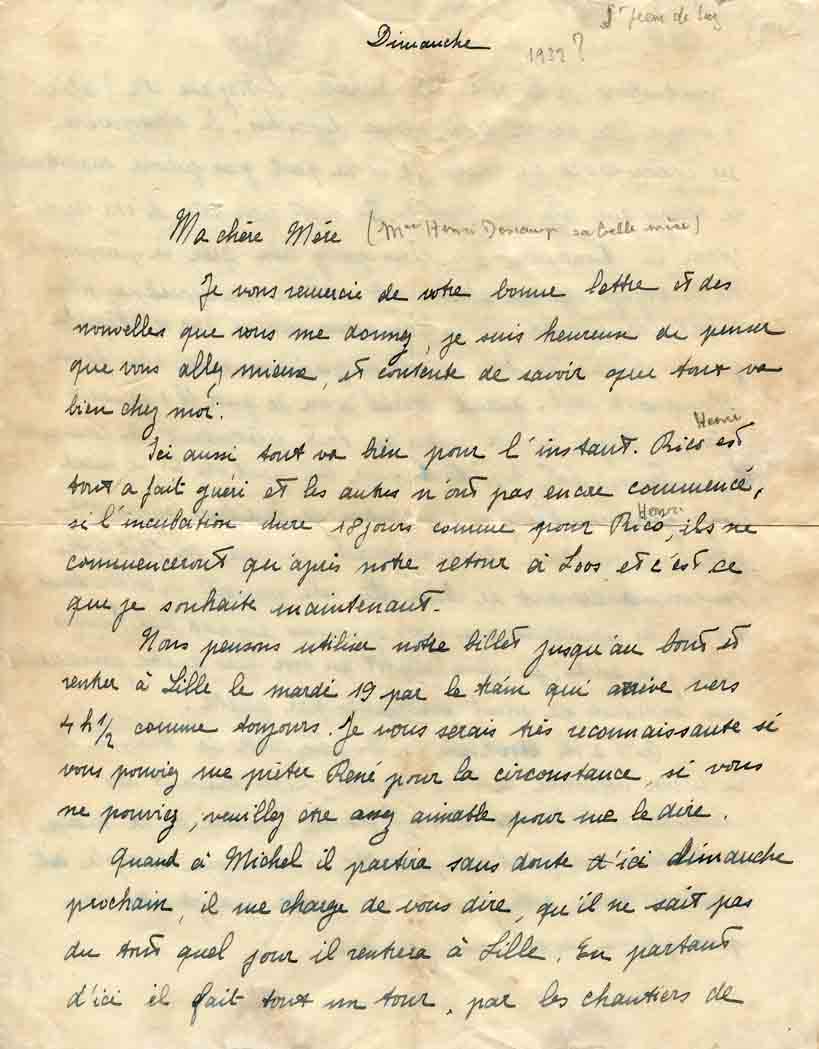 St Jean de Luz
Dimanche
1932 ?
Ma chère Mère (Mme Henri Descamps sa belle mère)
Je vous remercie de votre bonne lettre et des
nouvelles que vous me donnez, je suis heureuse de penser
que vous allez mieux, et contente de savoir que tout va
bien chez moi.
Henri
Ici aussi tout va bien pour l'instant. Rico est
tout a fait guéri et les autres n'ont pas encore commencé,
Henri
si l'incubation dure 18 jours comme pour Rico, ils ne
commenceront qu'après notre retour à Loos et c'est ce
que je souhaite maintenant.
Nous pensons utiliser notre billet jusqu'au bout et
rentrer à Lille le mardi 19 par le train qui arrive vers
4 h 1/2 comme toujours. Je vous serais très reconnaissante si
vous pouviez me prêter René pour la circonstance, si vous
ne pouviez, veuillez etre assez aimable pour me le dire.
Quand à Michel il partira sans doute d'ici dimanche
prochain, il me charge de vous dire, qu'il ne sait pas
du tout quel jour il rentrera à Lille. En partant
d'ici il fait tout un tour, par les chantiers de